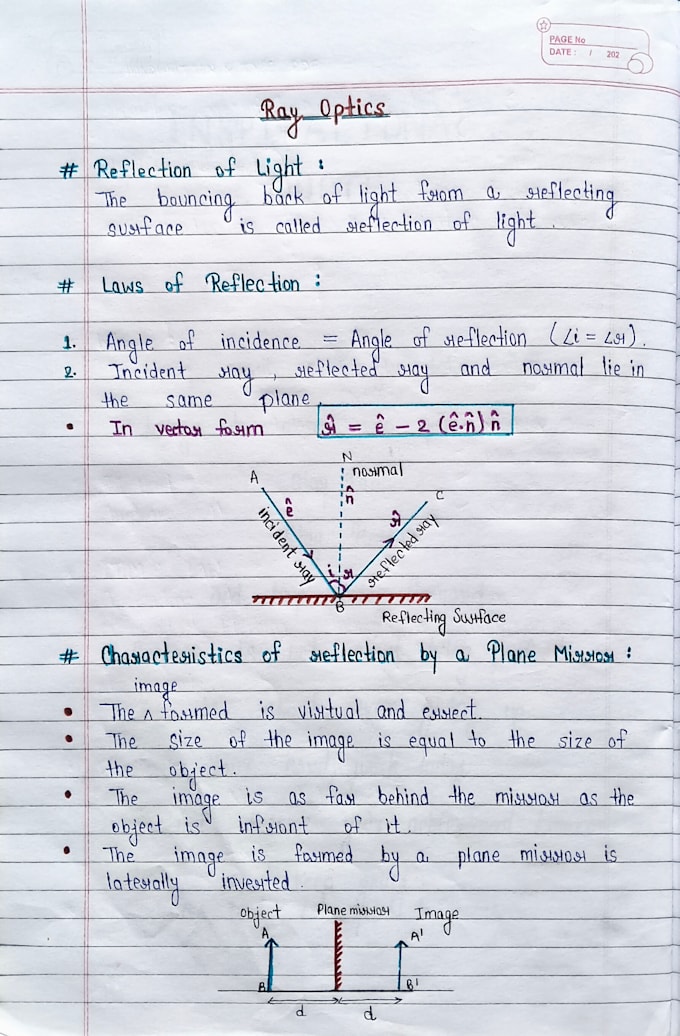 PAGE No
DATE: / 202
Ray Optics
# Reflection of Light :
The bouncing back of light from a reflecting
surface is called reflection of light.
# Laws of Reflection :
1. Angle of incidence = Angle of reflection (∠i = ∠r).
2. Incident ray, reflected ray and normal lie in
the same plane.
• In vector form r̂ = ê – 2 (ê.n̂) n̂
N
normal
A
n̂
C
ê
r̂
incident ray
reflected ray
i r
B
Reflecting Surface
# Characteristics of reflection by a Plane Mirror :
image
• The ^ formed is virtual and errect.
• The size of the image is equal to the size of
the object.
• The image is as far behind the mirror as the
object is infront of it.
• The image is formed by a plane mirror is
laterally inverted.
Object Plane mirror Image
A A'
B B'
d d